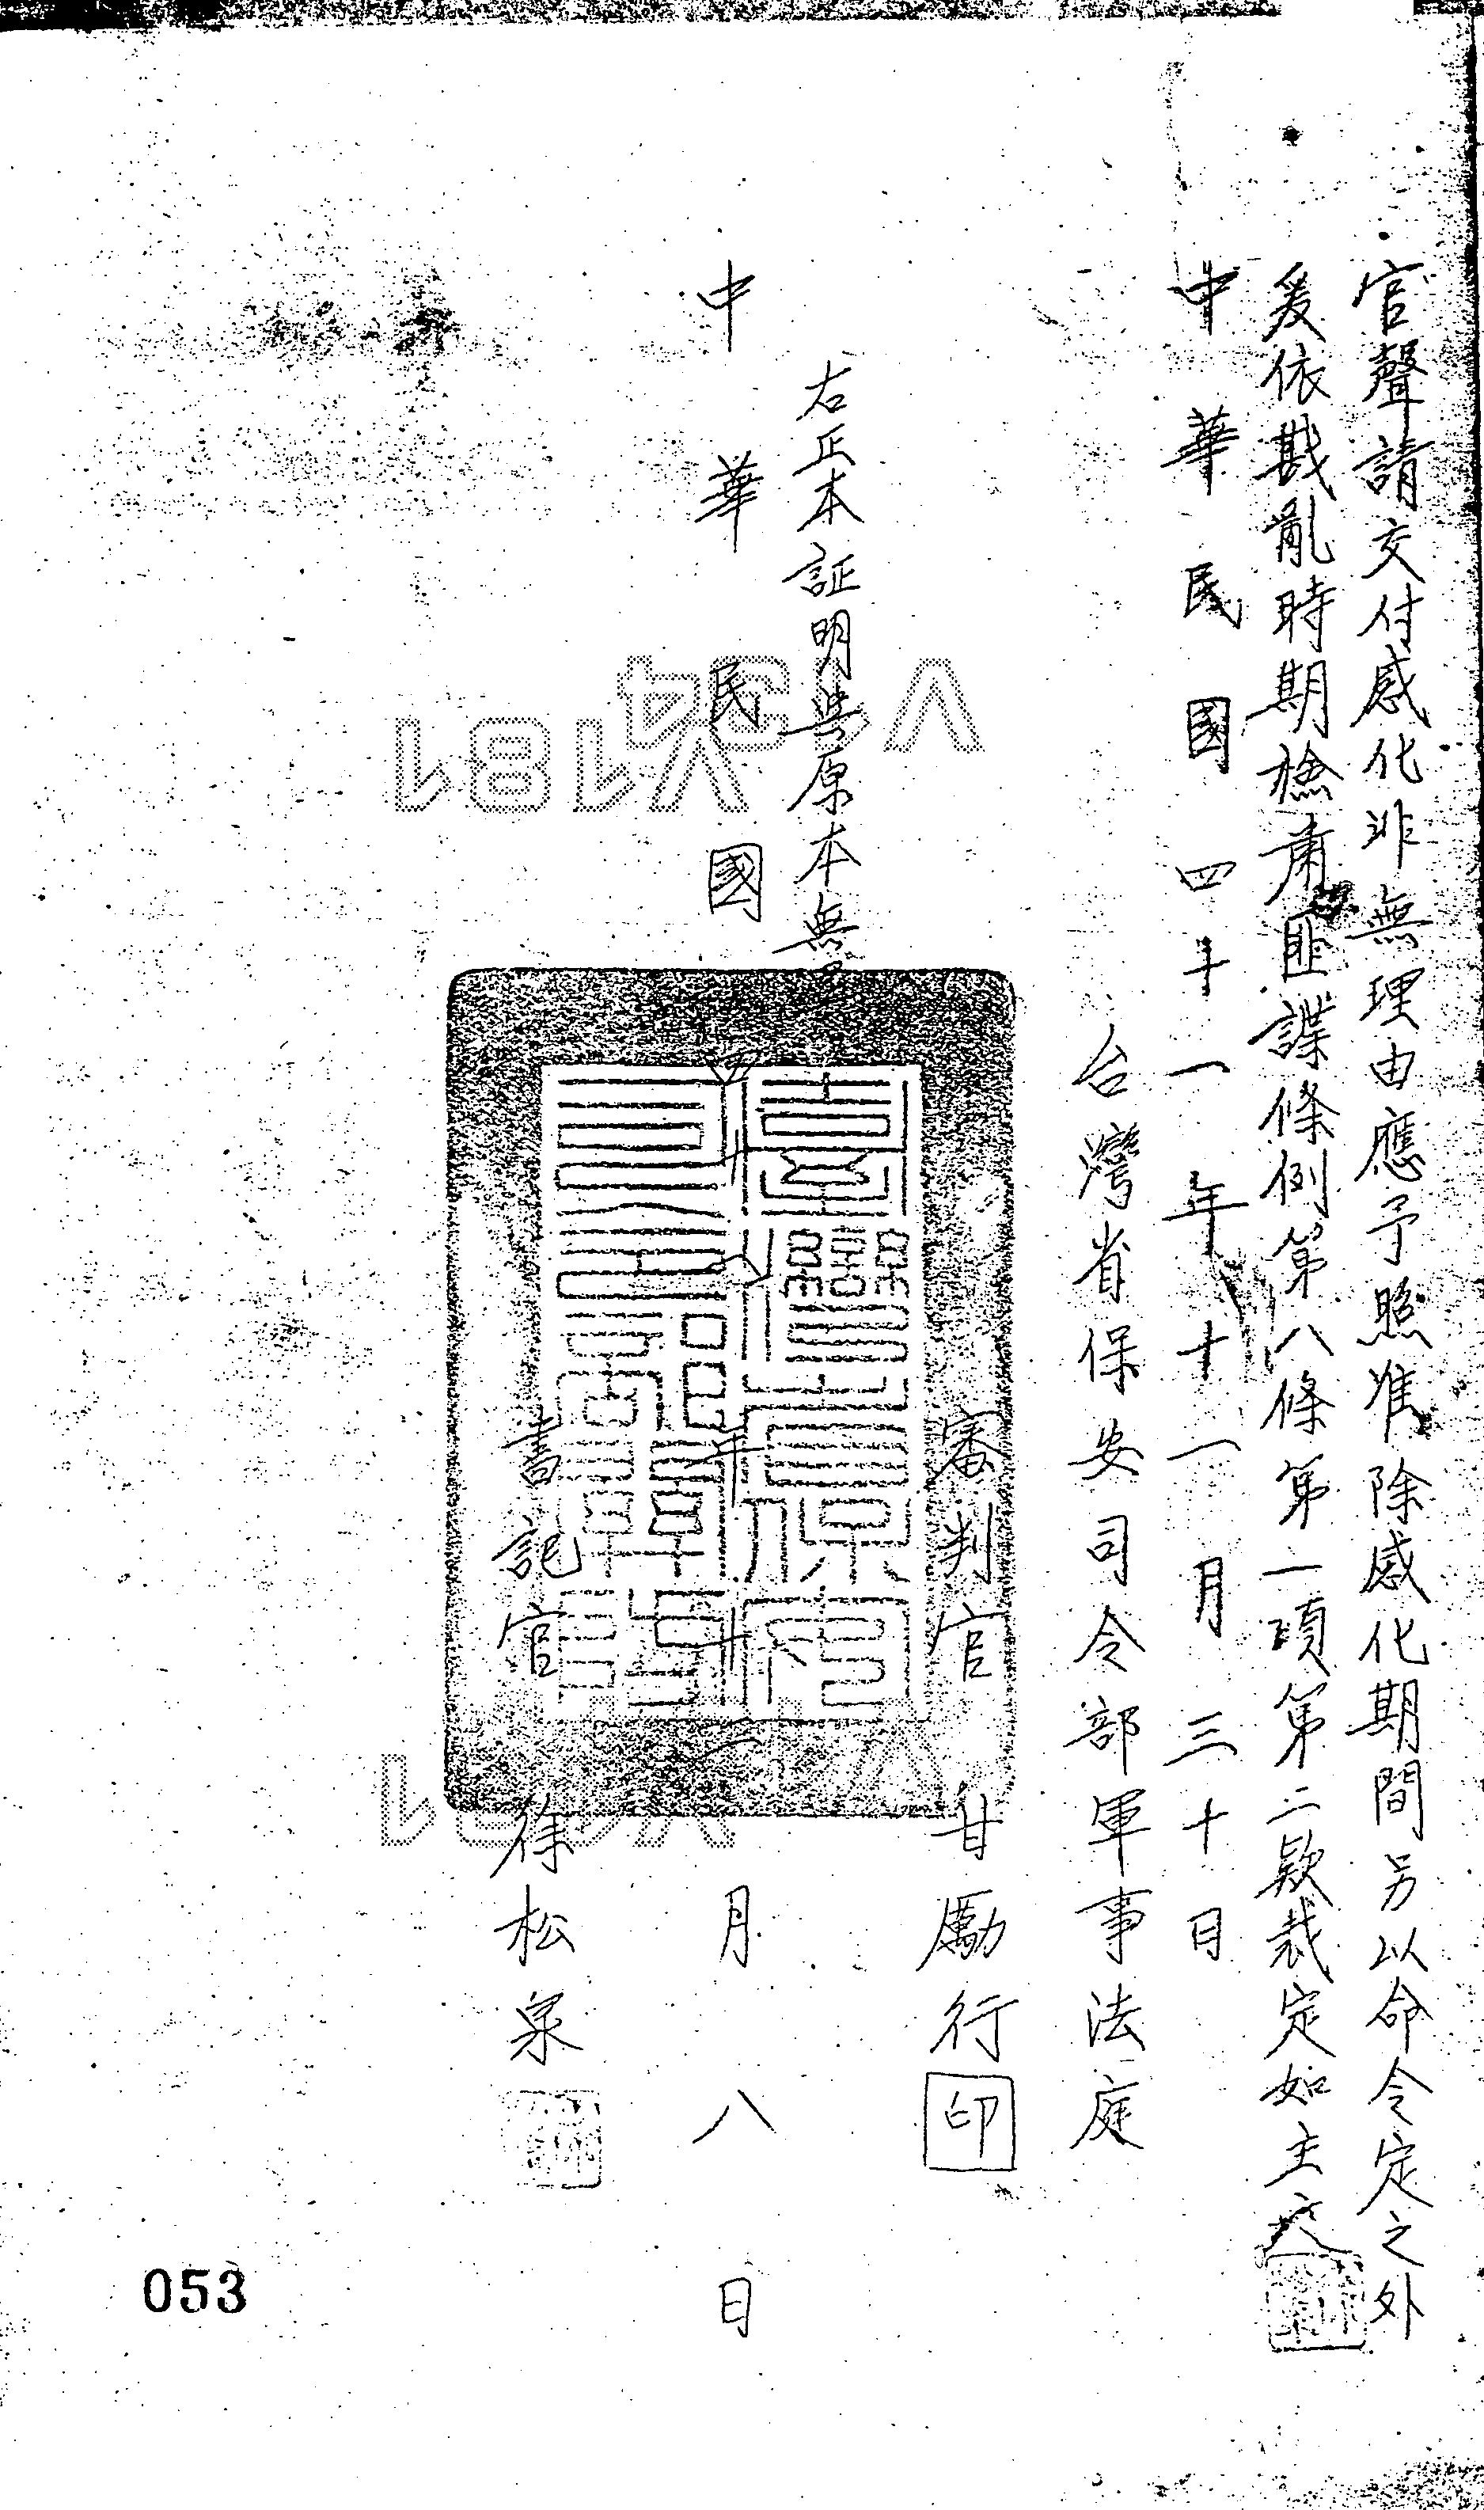 官聲請交付感化非無理由應予照准除感化期間另以命令定之外
爰依戡亂時期檢肅匪諜條例第八條第一項第二款裁定如主文
中華民國四十一年十一月三十日
台灣省保安司令部軍事法庭
審判官 甘勵行 印
右正本証明與原本無
中華民國四十一年十二月八日
書記官 徐松泉
053